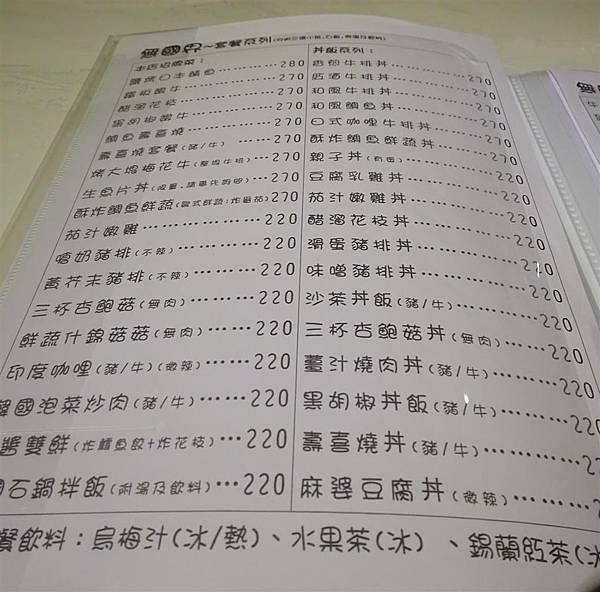 無國界~套餐系列
本店招牌菜：
鹽烤日本鯖魚………280
鐵板蝦牛………270
醋溜花枝………270
黑胡椒蝦牛………270
鯛魚壽喜燒………270
壽喜燒套餐(豬/牛)………270
烤大塊梅花牛(整塊牛排)…270
生魚片丼(限量,請事先詢問)270
酥炸鯛魚鮮蔬(歐式鮮蔬:炸番茄)270
茄汁嫩雞………220
嗆奶豬排(不辣)………220
黃芥末豬排(不辣)………220
三杯杏鮑菇(無肉)………220
鮮蔬什錦菇菇(無肉)………220
印度咖哩(豬/牛)(微辣)…220
韓國泡菜炒肉(豬/牛)…220
醬雙鮮(炸鱈魚餃+炸花枝)…220
石鍋拌飯(附湯及飲料)…220
丼飯系列：
香煎牛排丼………270
和風牛排丼………270
和風鯛魚丼………270
日式咖哩牛排丼………270
酥炸鯛魚鮮蔬丼………270
親子丼(有蛋)………220
豆腐乳雞丼………220
茄汁嫩雞丼………220
醋溜花枝丼………220
滑蛋豬排丼………220
味噌豬排丼………220
沙茶丼飯(豬/牛)………220
三杯杏鮑菇丼(無肉)………220
薑汁燒肉丼(豬/牛)………220
黑胡椒丼飯(豬/牛)………220
壽喜燒丼(豬/牛)………22
麻婆豆腐丼(微辣)………
餐飲料：烏梅汁(冰/熱)、水果茶(冰)、錫蘭紅茶(冰